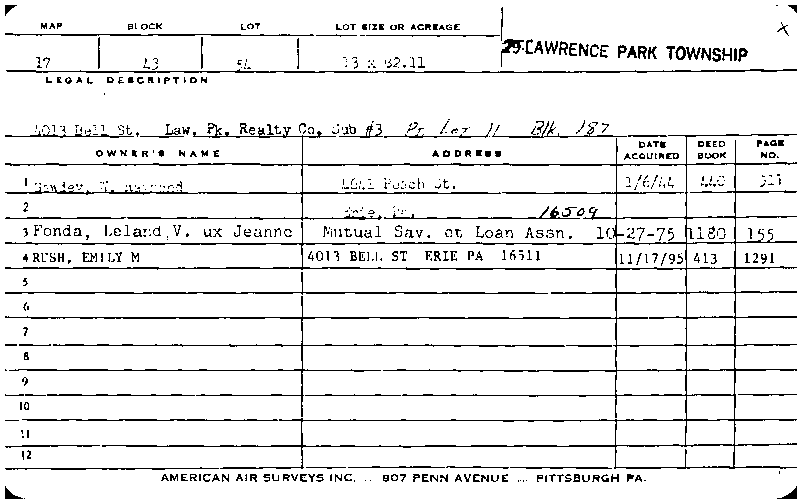 MAP BLOCK LOT LOT SIZE OR ACREAGE
29-LAWRENCE PARK TOWNSHIP X
17 43 54 13 x 82.11
LEGAL DESCRIPTION
4013 Bell St. Law. Pk. Realty Co. Sub #3 Pt Lot 11 Blk. 187
OWNER'S NAME ADDRESS DATE ACQUIRED DEED BOOK PAGE NO.
1 St. 1/6/44
2 Erie, Pa. 16509
3 Fonda, Leland V. ux Jeanne Mutual Sav. et Loan Assn. 10-27-75 1180 155
4 RUSH, EMILY M 4013 BELL ST ERIE PA 16511 11/17/95 413 1291
5
6
7
8
9
10
11
12
AMERICAN AIR SURVEYS INC. ... 807 PENN AVENUE ... PITTSBURGH PA.